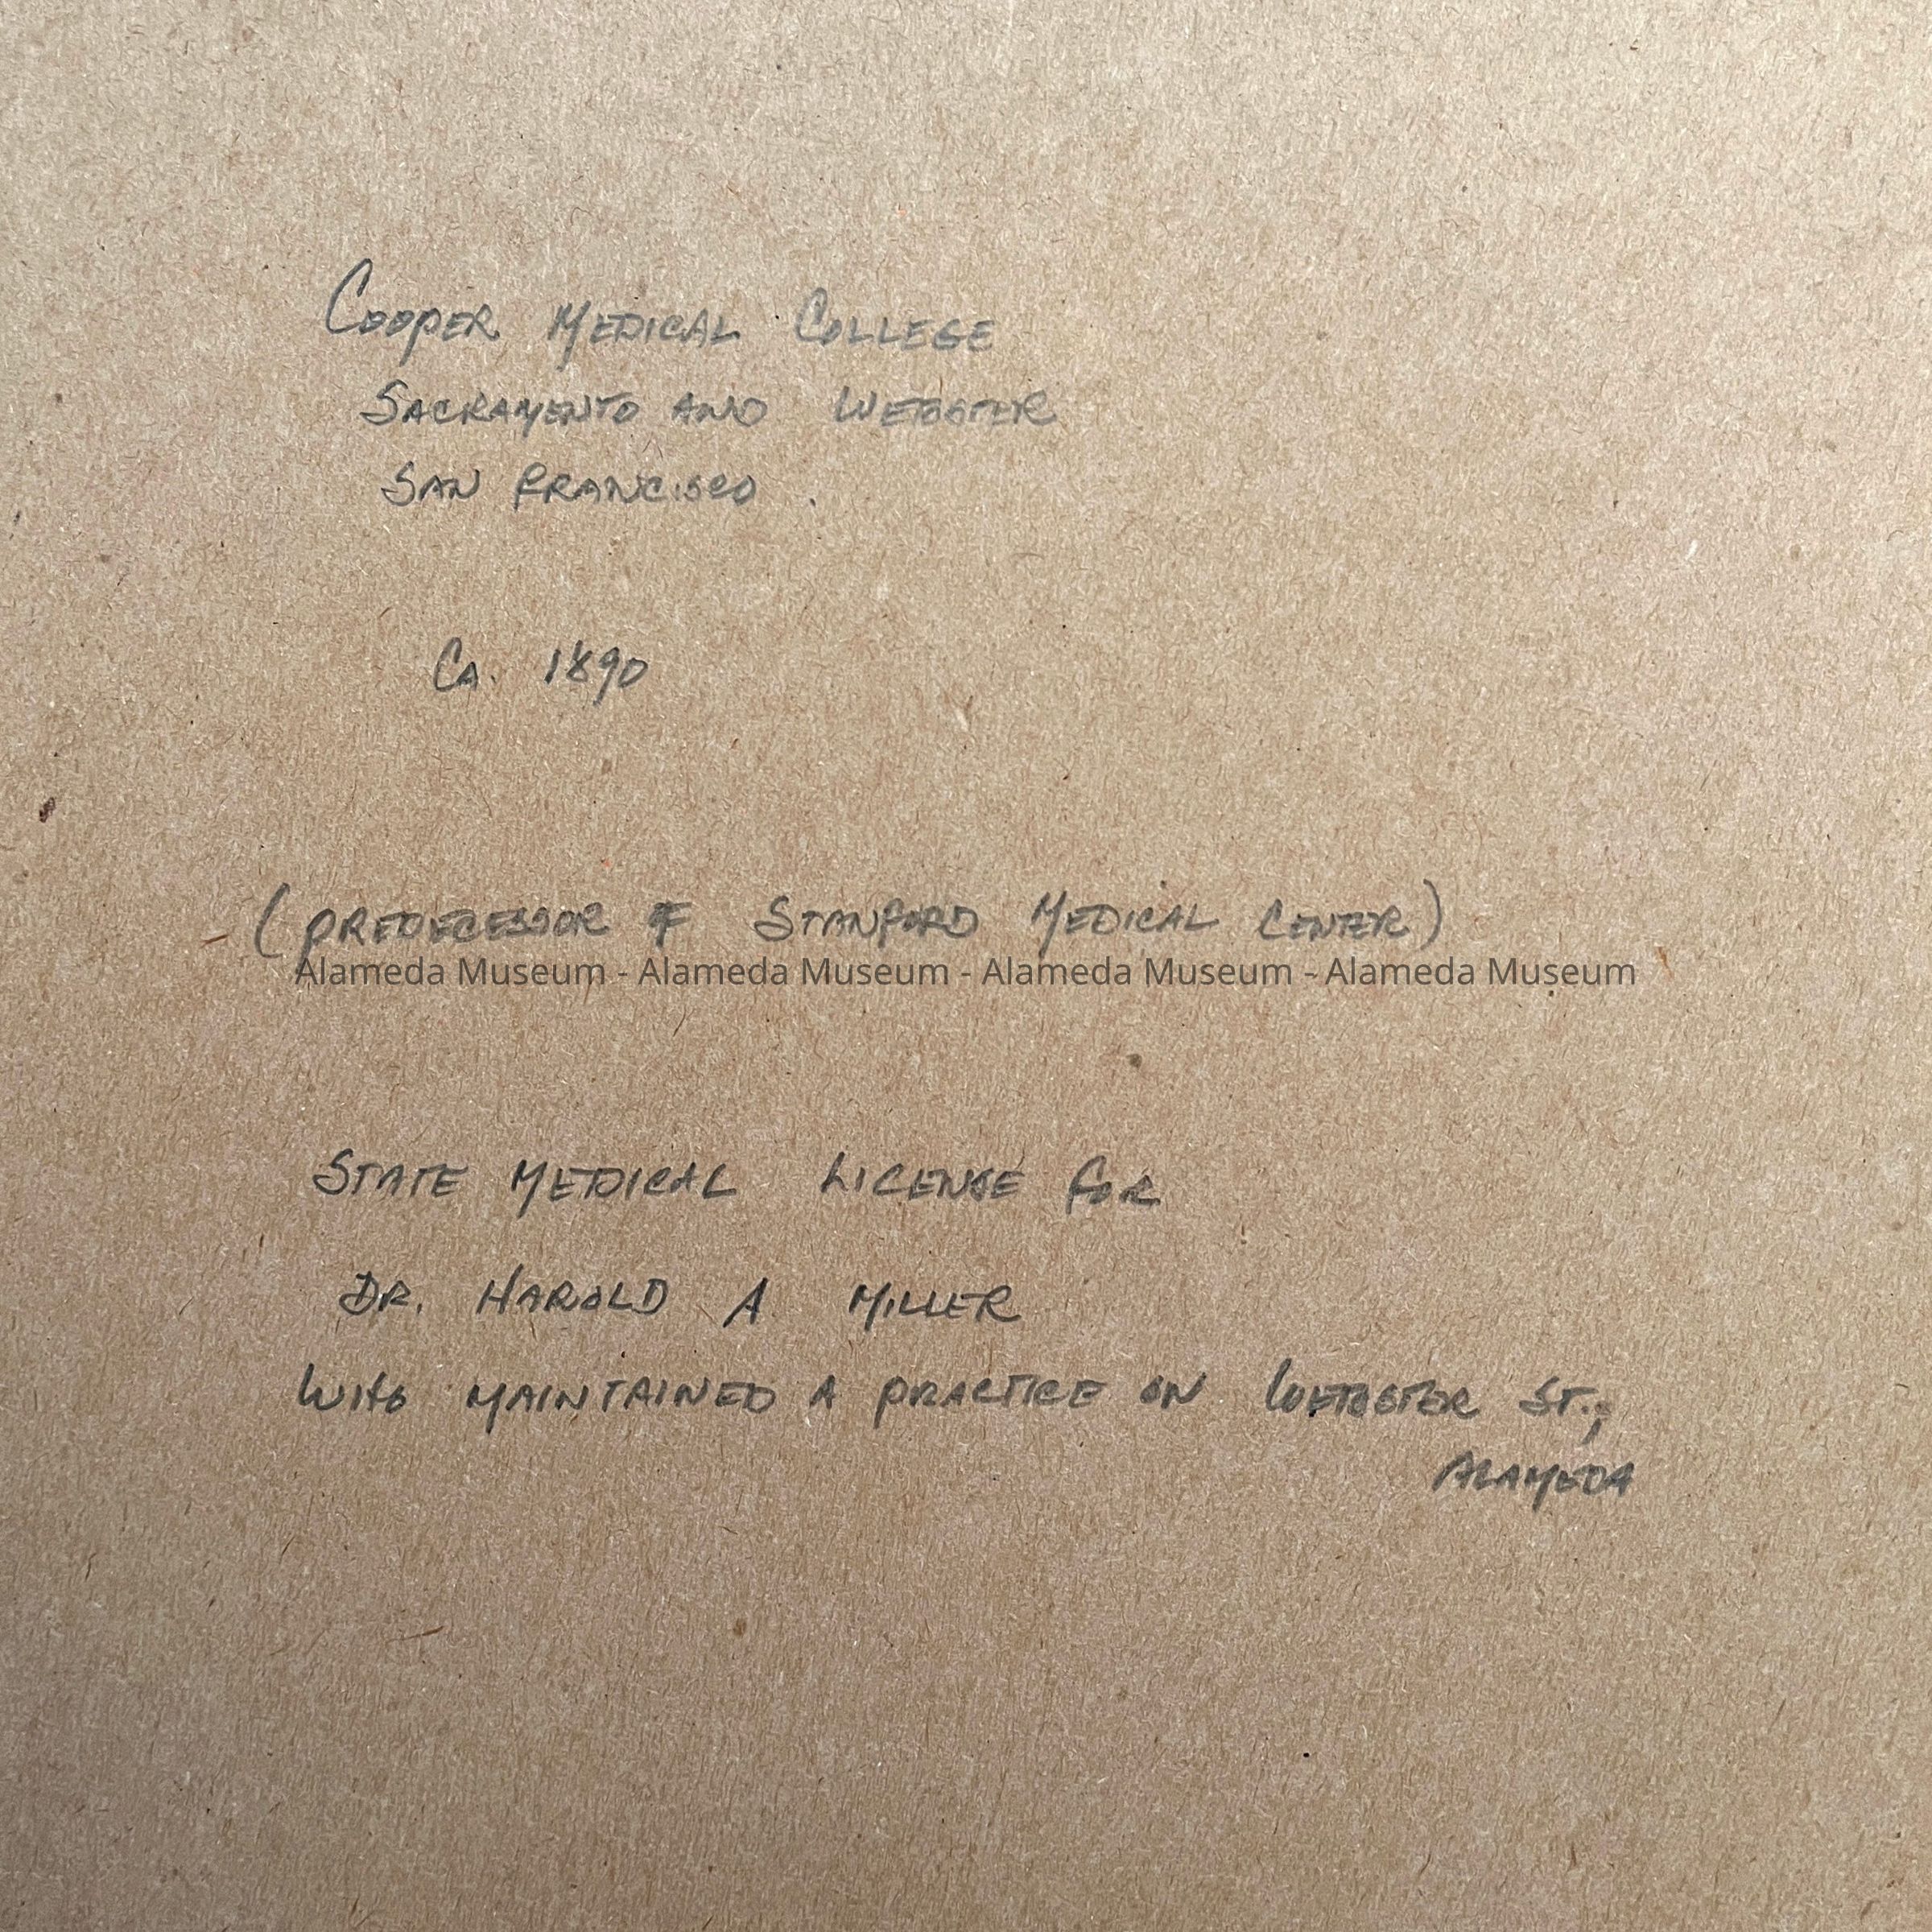 Cooper Medical College
Sacramento and Webster
San Francisco.
Ca. 1890
(predecessor of Stanford Medical Center)
Alameda Museum - Alameda Museum - Alameda Museum - Alameda Museum
State Medical License for
Dr. Harold A Miller
Who maintained a practice on Webster St.,
Alameda